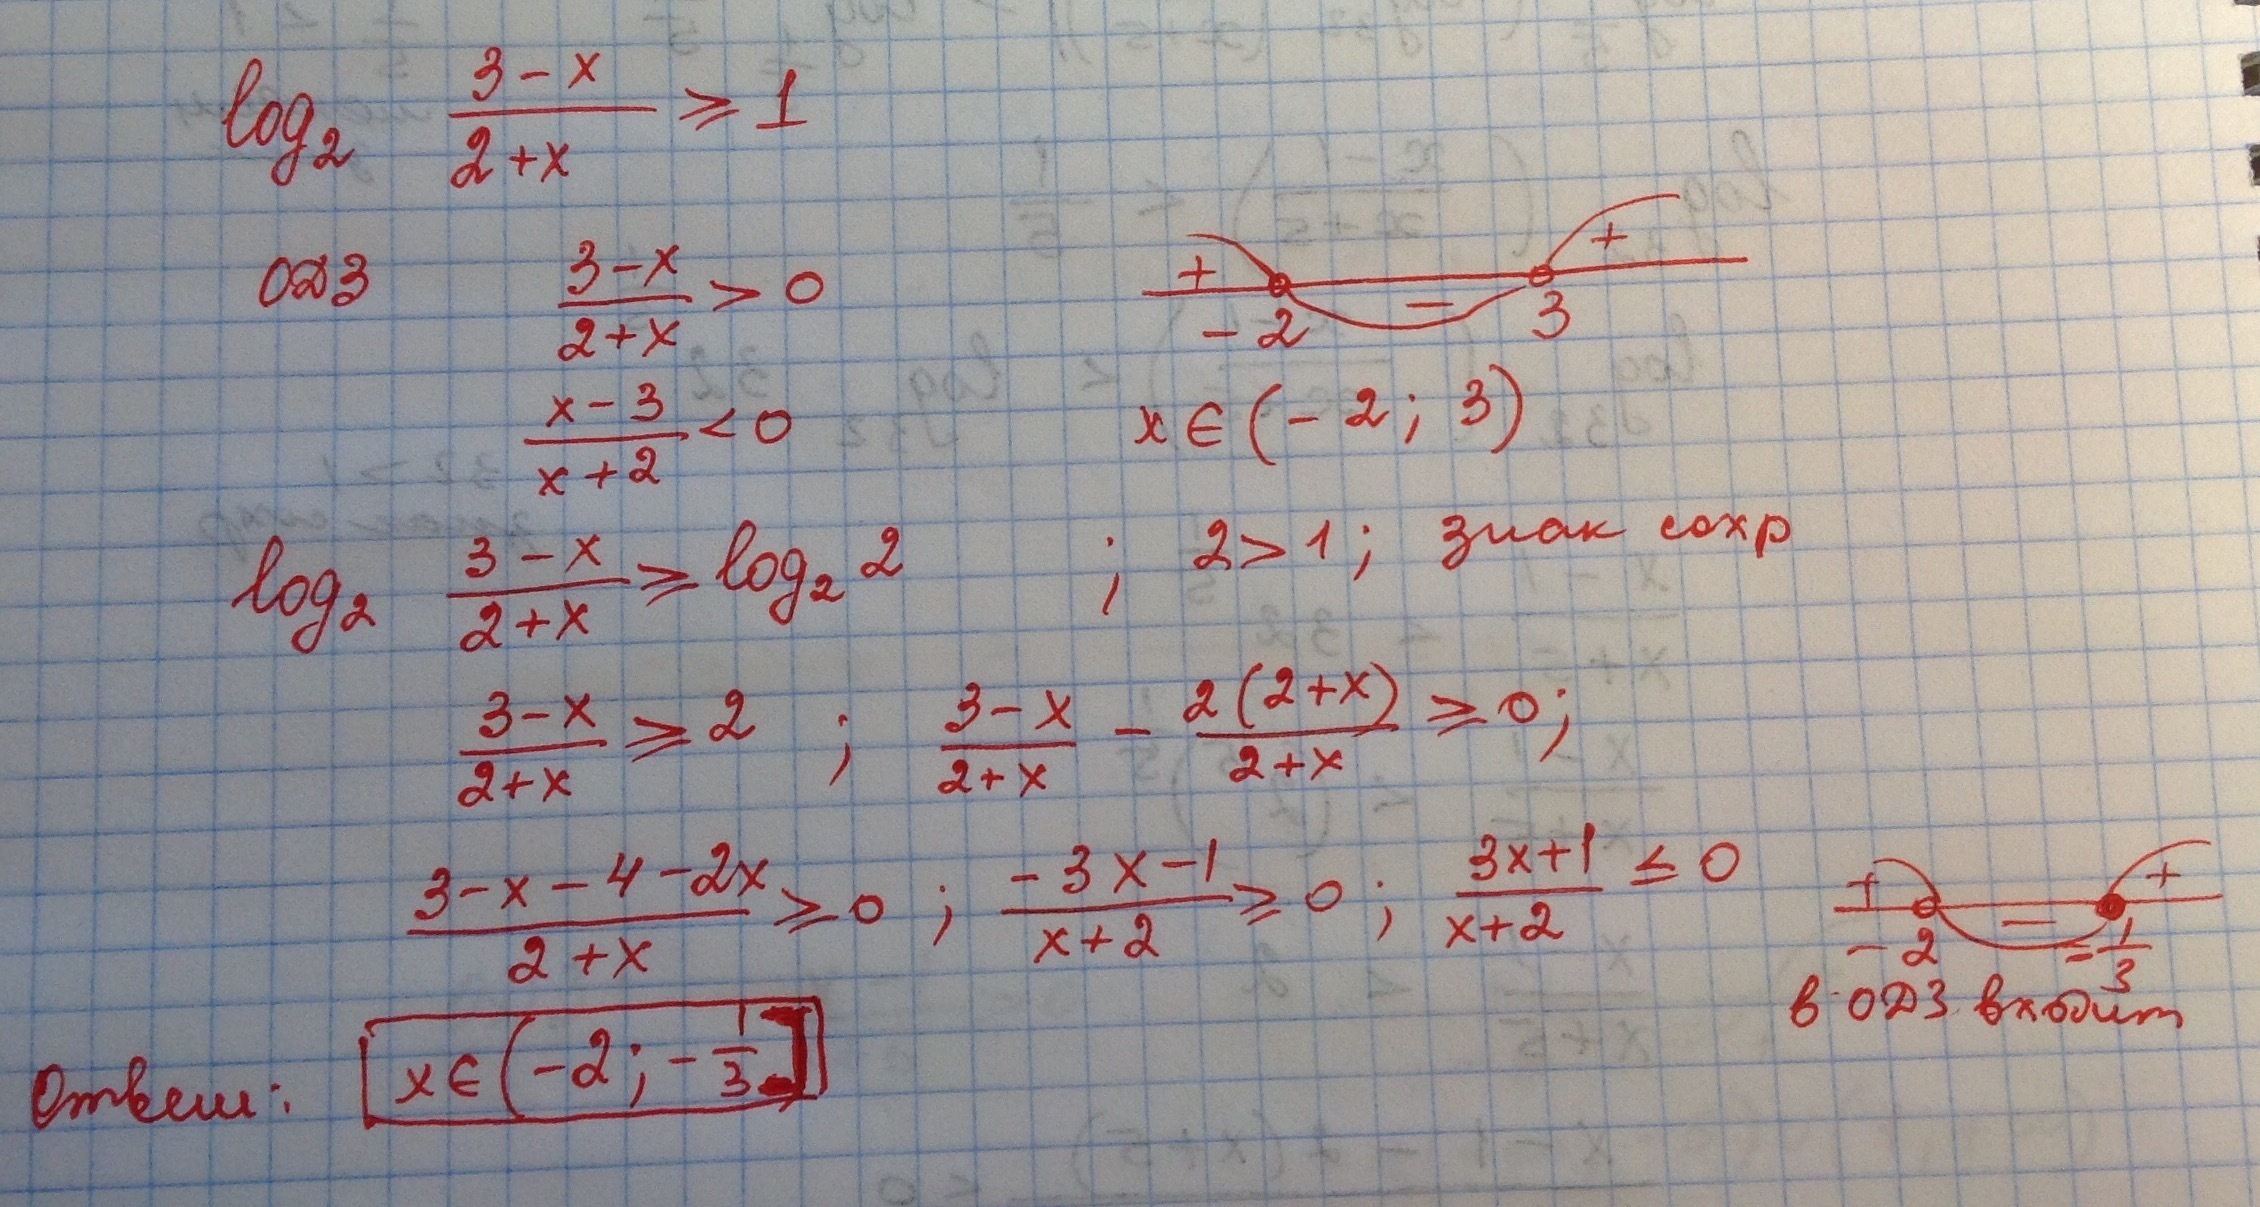 log₂ (3-x)/(2+x) ≥ 1
ОДЗ (3-x)/(2+x) > 0
+ - +
-2 3
(x-3)/(x+2) < 0
x ∈ (-2; 3)
log₂ (3-x)/(2+x) ≥ log₂ 2 ; 2 > 1; знак сохр
(3-x)/(2+x) ≥ 2 ; (3-x)/(2+x) - 2(2+x)/(2+x) ≥ 0;
(3-x-4-2x)/(2+x) ≥ 0 ; (-3x-1)/(x+2) ≥ 0 ; (3x+1)/(x+2) ≤ 0
+ - +
-2 -1/3
в ОДЗ входит
Ответ: x ∈ (-2; -1/3]